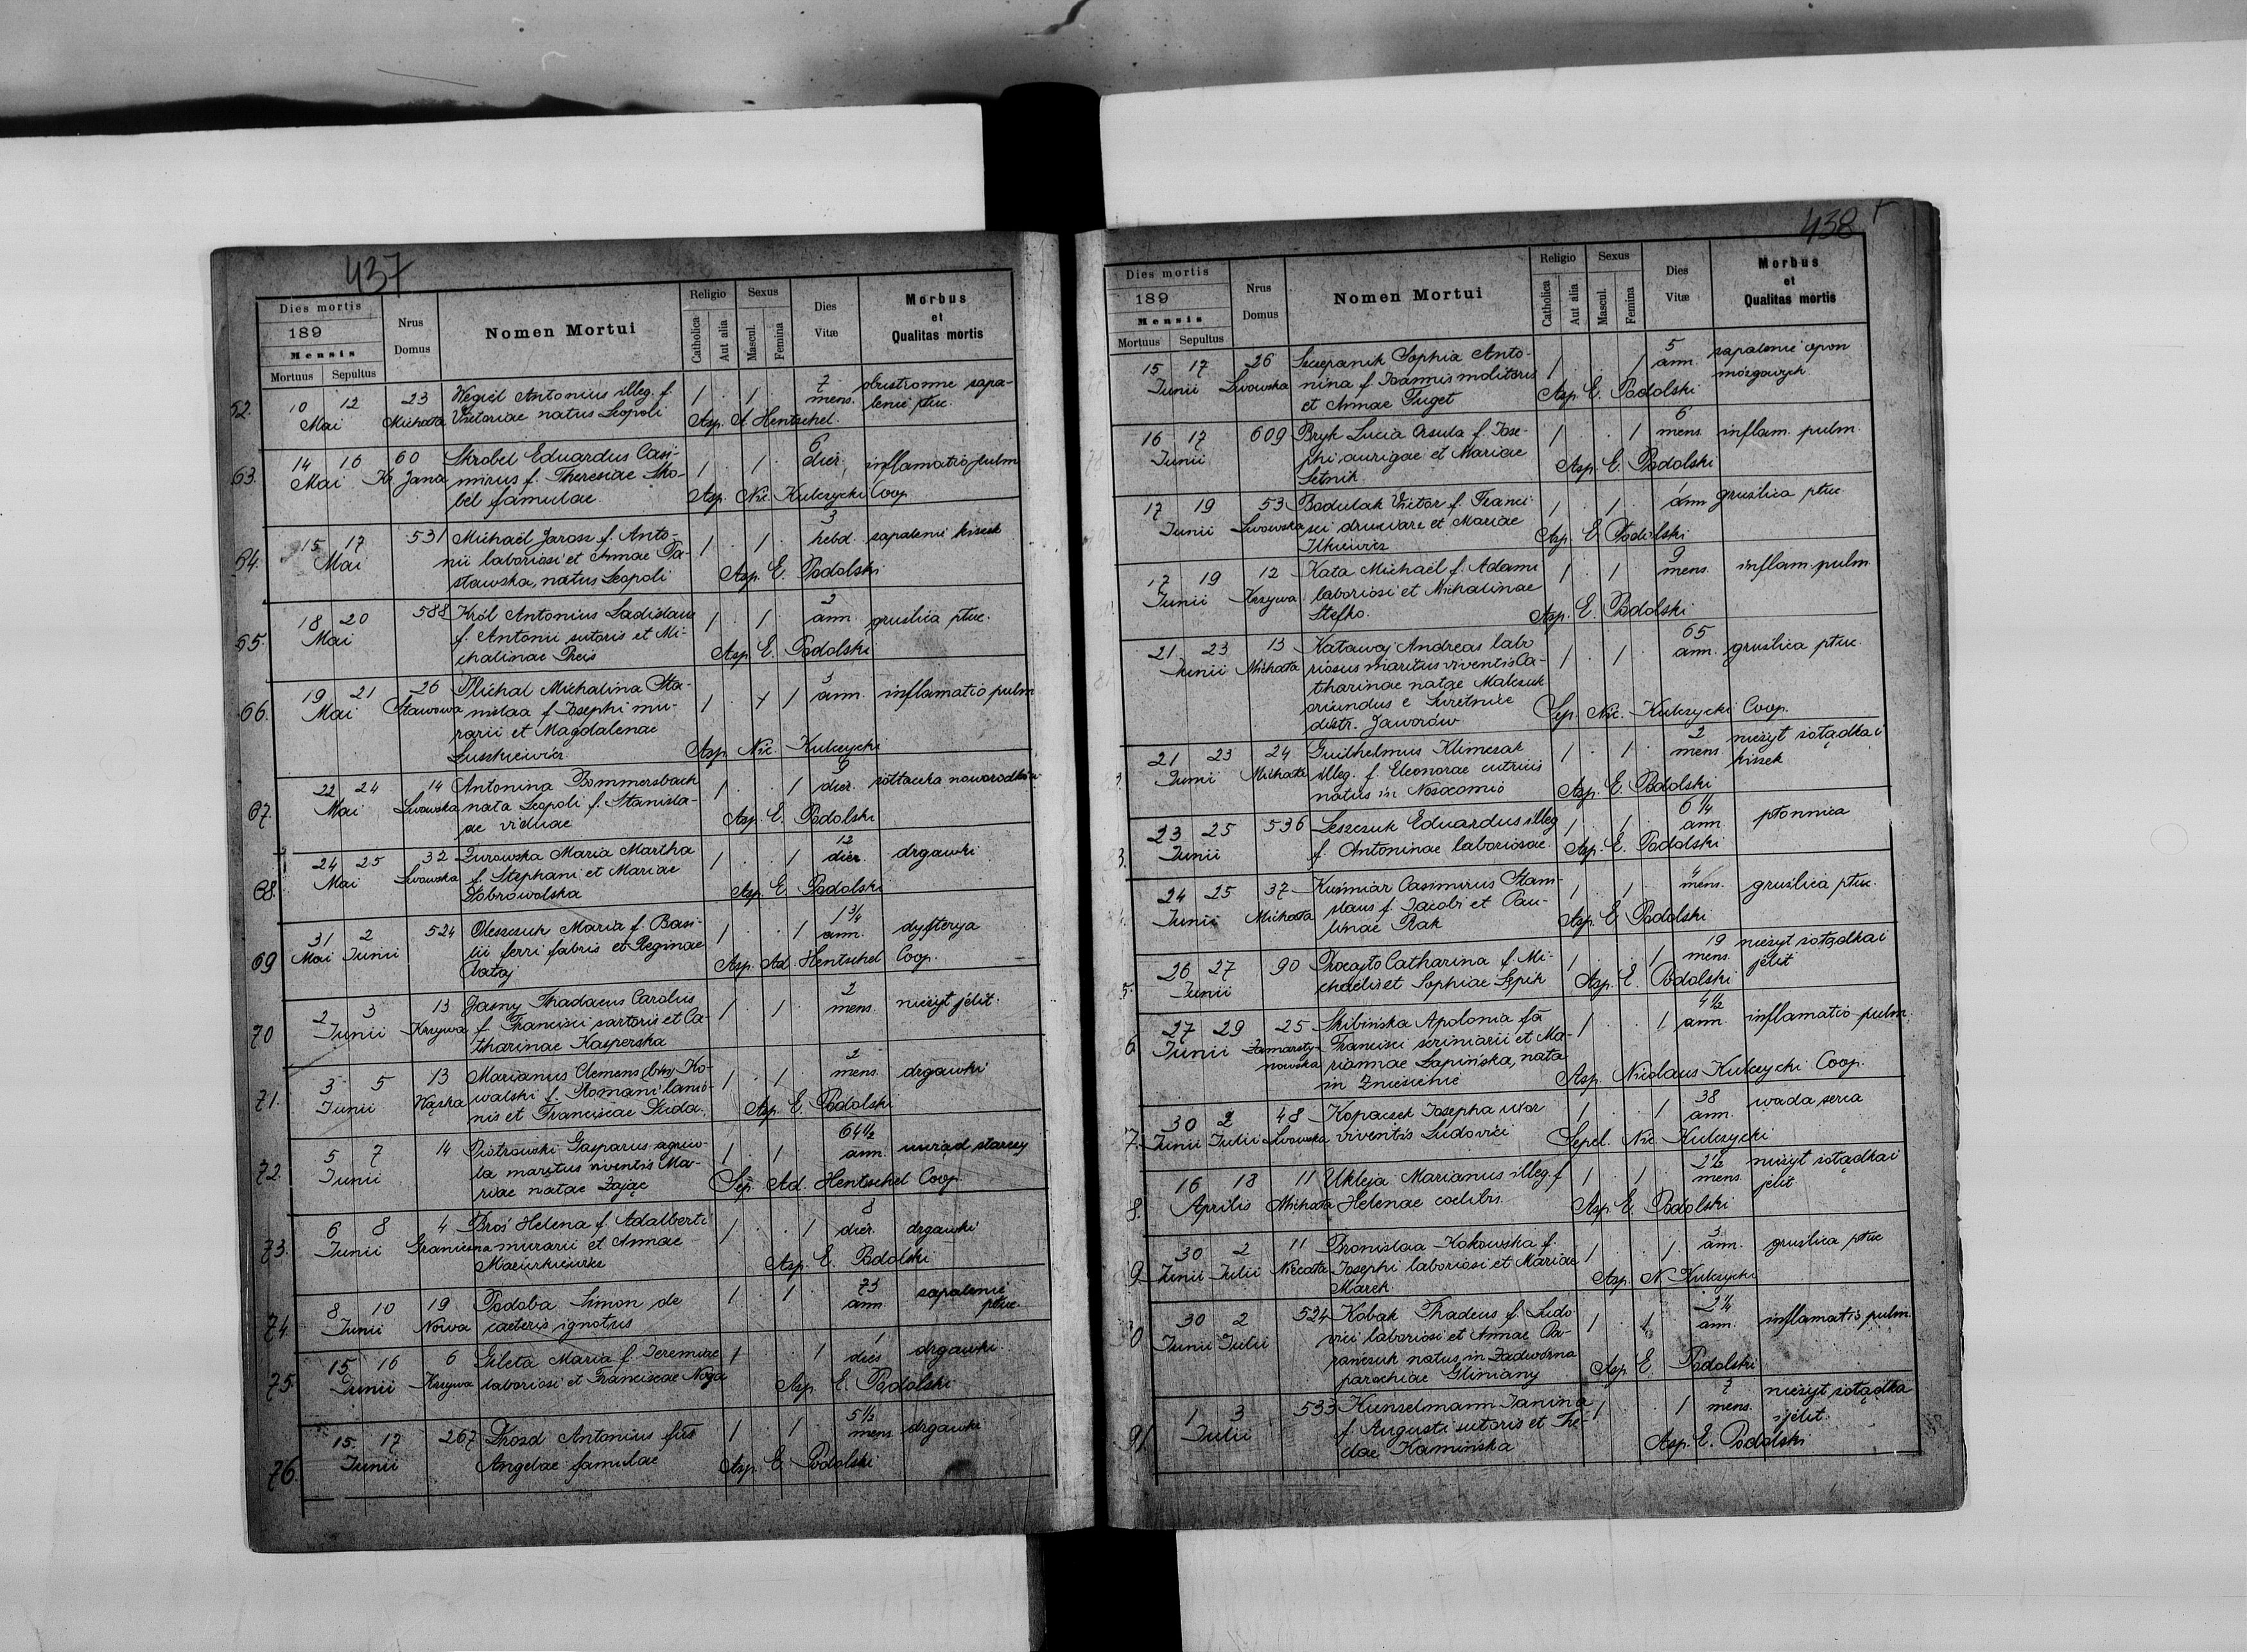 437
Dies mortis
189
Mensis
Mortuus Sepultus
Nrus Domus
Nomen Mortui
Religio
Catholica Aut alia
Sexus
Mascul. Femina
Dies Vitæ
Morbus et Qualitas mortis
10 12 23 Antonius illeg. f. 1 . 1 . 7
Mai Michała natus Leopoli mens.
Asp. A Hentschel.
63. 14 16 60 Skrobel Eduardus Casi- 1 . 1 . 6 inflamatio pulm
Mai K. Jana mirus f. Theresiae Sko- dier.
bel famulae. Asp. Nic. Kulczycki Coop.
64. 15 17 531 Michaël Jarosz f. Anto- 1 . 1 . 3 zapalenie kiszek
Mai nii laboriosi et Annae Pa- hebd.
sławska, natus Leopoli Asp. E. Podolski
65. 18 20 588 Król Antonius Ladislaus 1 . 1 . 2 gruźlica płuc.
Mai f. Antonii sutoris et Mi- ann.
chalinae Preis Asp. E. Podolski
66. 19 21 26 Michalina Sta- 1 . 1 3 inflamatio pulm
Mai Stawowa nislaa f. Josephi mu- ann.
rarii et Magdalenae
Luszkiewicz Asp. Nic. Kulczycki
67. 22 24 14 Antonina Bommersbach 1 . . 1 9 żółtaczka noworodków
Mai Lwowska nata Leopoli f. Stanisla- dier.
ae viduae Asp. E. Podolski
68. 24 25 32 Żurowska Maria Martha 1 . . 1 12 drgawki
Mai Lwowska f. Stephani et Mariae dier.
Dobrowolska Asp. E. Podolski
69 31 2 524 Oleszczuk Maria f. Basi- 1 . . 1 1 3/4 dyfterya
Mai Junii lii ferri fabris et Reginae ann.
Asp. Ad. Hentschel Coop.
70 2 3 13 Jasny Thadaeus Carolus 1 . 1 . 2 nieżyt jelit.
Junii Krzywa f. Francisci sartoris et Ca- mens.
tharinae Kasperska
71. 3 5 13 Marianus Clemens Ko- 1 . 1 . 2 drgawki
Junii Wąska walski f. Romani lanio- mens.
nis et Franciscae Duda. Asp. E. Podolski
72. 5 7 14 Piotrowski Gasparus agrico- 1 . 1 . 64 1/2 uwiąd starczy
Junii la maritus viventis Ma- ann.
riae natae Zając Sep. Ad. Hentschel Coop.
73. 6 8 4 Broś Helena f. Adalberti 1 . . 1 8 drgawki
Junii Graniczna murarii et Annae dier.
Asp. E. Podolski
74. 8 10 19 Podoba Simon de 1 . 1 . 73 zapalenie
Junii Nowa caeteris ignotus ann. płuc
75. 15 16 6 Gileta Maria f. Jeremiae 1 . . 1 1 drgawki
Junii Krzywa laboriosi et Franciscae Noga dies
Asp. E. Podolski
76. 15 17 267 Drozd Antonius fus 1 . 1 . 5 1/2 drgawki
Junii Angelae famulae mens.
Asp. E. Podolski
438
Dies mortis
189
Mensis
Mortuus Sepultus
Nrus Domus
Nomen Mortui
Religio
Catholica Aut alia
Sexus
Mascul. Femina
Dies Vitæ
Morbus et Qualitas mortis
15 17 26 Szczepanik Sophia Anto- 1 . . 1 5 zapalenie opon
Junii Lwowska nina f. Joannis molitoris ann. mózgowych
et Annae Puget Asp. E. Podolski
16 17 609 Bryk Lucia Ursula f. Jose- 1 . . 1 6 inflam. pulm.
Junii phi aurigae et Mariae mens.
Letnik. Asp. E. Podolski
17 19 53 Badulak Victor f. Franci- 1 . 1 . 1 gruźlica płuc
Junii Lwowska sci et Mariae ann
Ilkiewicz Asp. E. Podolski
17 19 12 Kata Michaël f. Adami 1 . 1 . 9 inflam. pulm
Junii Krzywa laboriosi et Michalinae mens.
Stefko. Asp. E. Podolski
21 23 13 Kataway Andreas labo 1 . 1 . 65 gruźlica płuc.
Junii Michała riosus maritus viventis Ca- ann.
tharinae natae Malczuk
oriundus e
distr. Jaworów Sep. Nic. Kulczycki Coop.
21 23 24 Guilhelmus Klimczak 1 . 1 . 2 nieżyt żołądka i
Junii Michała illeg. f. Eleonorae mens. kiszek
natus in Nosocomio Asp. E. Podolski
23 25 536 Leszczuk Eduardus illeg 1 . 1 . 6 1/4 płonnica
Junii f. Antoninae laboriosae. ann.
Asp. E. Podolski
24 25 37 Kuśmiar Casimirus Stani- 1 . 1 . 4 gruźlica płuc.
Junii Michała slaus f. Jacobi et Pau- mens.
linae Rak Asp. E. Podolski
5. 26 27 90 Catharina f. Mi- 1 . . 1 19 nieżyt żołądka i
Junii chaelis et Sophiae Lepik mens. jelit
Asp. E. Podolski
6. 27 29 25 Skibińska Apolonia fa 1 . . 1 4 1/2 inflamatio pulm.
Junii Zamarsty- Francisci scriniarii et Ma- ann.
nowska riannae Łapińska, nata
in Zniesienie Asp. Nicolaus Kulczycki Coop.
7. 30 2 48 Kopaczek Josepha uxor 1 . . 1 38 wada serca
Junii Julii Lwowska viventis Ludovici ann.
Sepel. Nic. Kulczycki
8. 16 18 11 Ukleja Marianus illeg. f 1 . 1 . 2 1/2 nieżyt żołądka i
Aprilis Michała Helenae coelibis. mens. jelit
Asp. E. Podolski
9 30 2 11 Bronislaa Kokowska f. 1 . . 1 3 gruźlica płuc
Junii Julii Josephi laboriosi et Mariae ann.
Marek. Asp. N. Kulczycki
30 2 524 Kobak Thadeus f. Ludo- 1 . 1 . 2 1/4 inflamatio pulm
Junii Julii vici laboriosi et Annae Pa- ann.
rańczuk natus in Zadwórna
parochiae Gliniany Asp. E. Podolski
91 1 3 533 Kunzelmann Janina 1 . . 1 7 nieżyt żołądka
Julii f. Augusti sutoris et The- mens. i jelit.
clae Kamińska Asp. E. Podolski